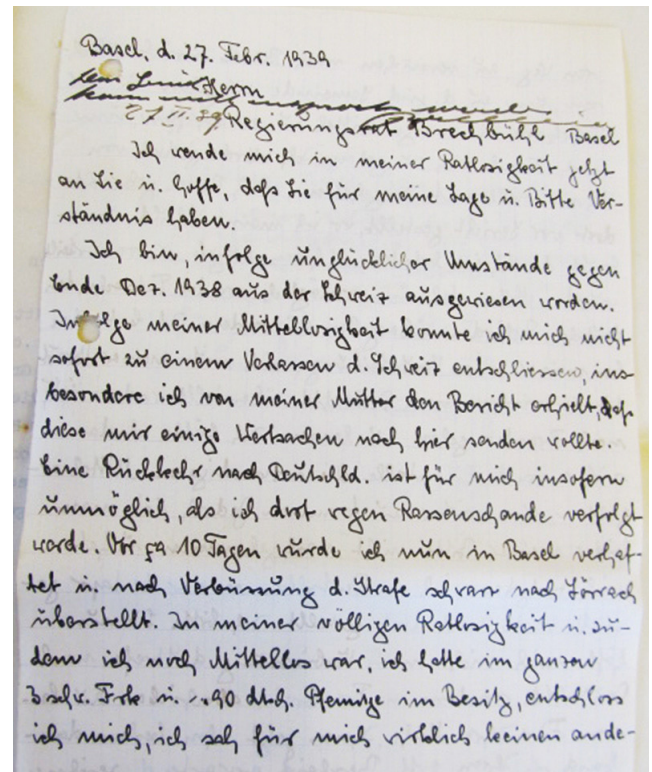 Basel, d. 27. Febr. 1939
Herrn
27 II. 39. Regierungsrat Brechbühl Basel
Ich wende mich in meiner Ratlosigkeit jetzt
an Sie u. hoffe, daß Sie für meine Lage u. Bitte Ver-
ständnis haben.
Ich bin, infolge unglücklicher Umstände gegen
Ende Dez. 1938 aus der Schweiz ausgewiesen worden.
Infolge meiner Mittellosigkeit konnte ich mich nicht
sofort zu einem Verlassen d. Schweiz entschliessen, ins-
besondere ich von meiner Mutter den Bericht erhielt, daß
diese mir einige Wertsachen nach hier senden wollte.
Eine Rückkehr nach Deutschld. ist für mich insofern
unmöglich, als ich drot wegen Rassenschande verfolgt
werde. Vor ça 10 Tagen wurde ich nun in Basel verhaf-
tet u. nach Verbüssung d. Strafe schwarz nach Lörrach
überstellt. In meiner völligen Ratlosigkeit u. zu-
dem ich noch Mittellos war, ich hatte im ganzen
3 schw. Frk u. -.90 dtsch. Pfennige im Besitz, entschloss
ich mich, ich sah für mich wirklich keinen ande-